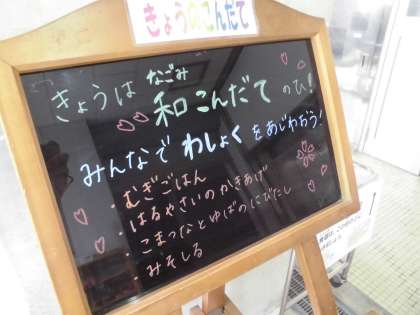 きょうのこんだて
きょうは 和 こんだて のひ!
なごみ
みんなで わしょく をあじわおう!
・むぎごはん
・はるやさいのかきあげ
・こまつなとゆばのにびたし
・みそしる